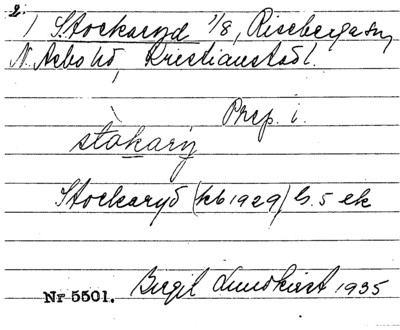 2.
1 Stockaryd 1/8, Riseberga sn,
N. Åsbo hd, Kristianstads l.
Prep. i.
stòkarỳ
Stockaryd (kb 1929) b. 5 ek
Nr 5501. Birgit Lundkvist 1935